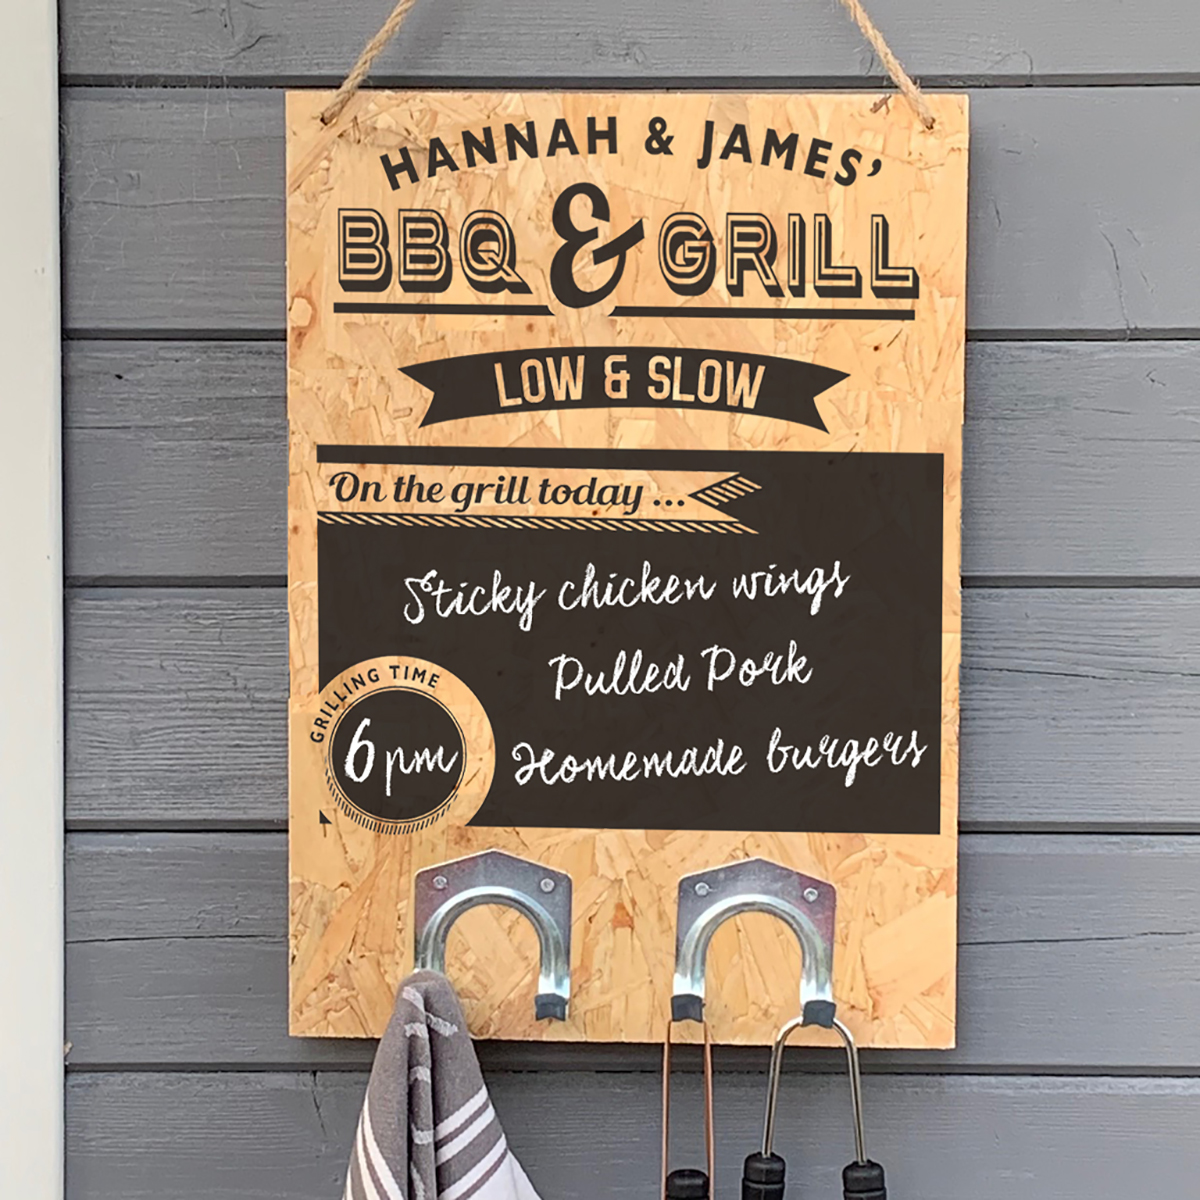 HANNAH & JAMES'
BBQ & GRILL
LOW & SLOW
On the grill today ...
Sticky chicken wings
Pulled Pork
GRILLING TIME
6pm
Homemade burgers